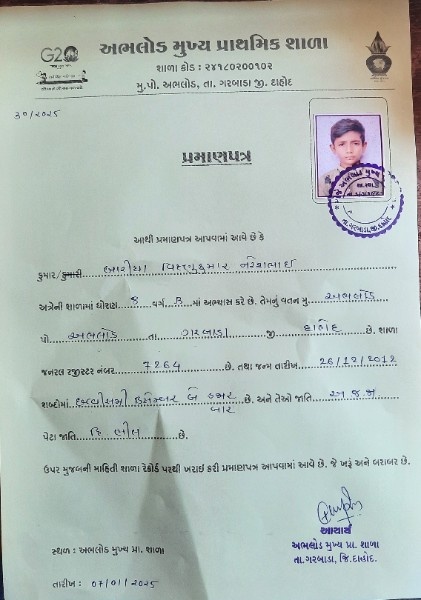 G20
અભલોડ મુખ્ય પ્રાથમિક શાળા
શાળા કોડ : ૨૪૧૮૦૨૦૦૧૦૨
મુ.પો. અભલોડ, તા. ગરબાડા જી. દાહોદ
30/2025
પ્રમાણપત્ર
આથી પ્રમાણપત્ર આપવામાં આવે છે કે
કુમાર/કુમારી બારીયા વિષ્ણુકુમાર નરેશભાઈ
અત્રેની શાળામાં ધોરણ 8 વર્ગ B માં અભ્યાસ કરે છે. તેમનું વતન મુ. અભલોડ
પો. અભલોડ તા. ગરબાડા જી. દાહોદ છે. શાળા
જનરલ રજીસ્ટર નંબર 7264 છે. તથા જન્મ તારીખ 26/12/2012
શબ્દોમાં છવ્વીસમી ડિસેમ્બર બે હજાર બાર છે. અને તેઓ જાતિ અ.જ.જા
પેટા જાતિ હિ. ભીલ છે.
ઉપર મુજબની માહિતી શાળા રેકોર્ડ પરથી ખરાઈ કરી પ્રમાણપત્ર આપવામાં આવે છે. જે ખરૂં અને બરાબર છે.
આચાર્ય
સ્થળ : અભલોડ મુખ્ય પ્રા. શાળા
અભલોડ મુખ્ય પ્રા. શાળા
તા.ગરબાડા, જિ.દાહોદ.
તારીખ : 07/01/2025